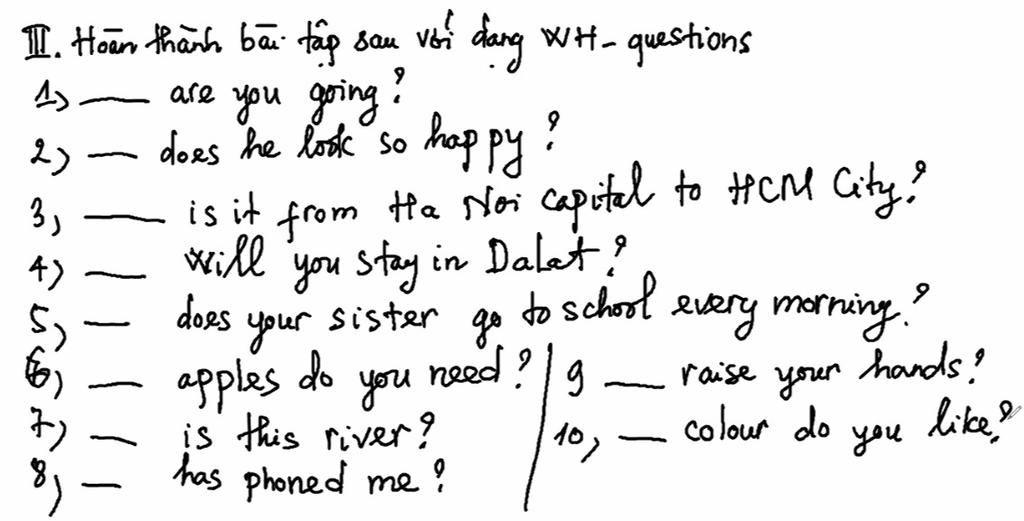 III. Hoàn thành bài tập sau với dạng WH-questions
1) ___ are you going?
2) ___ does he look so happy?
3, ___ is it from Ha Noi capital to HCM City?
4) ___ Will you stay in DaLat?
5, ___ does your sister go to school every morning?
6, ___ apples do you need?
7, ___ is this river?
8, ___ has phoned me?
9 ___ raise your hands?
10, ___ colour do you like?